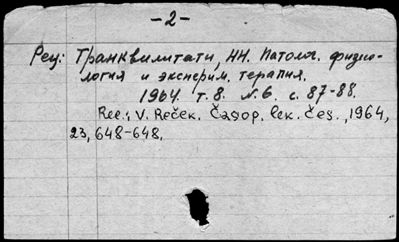 -2-
Рец: Транквилитати, НН. Патолог. физио-
логия и эксперим. терапия.
1964. т. 8. №6. с. 87-88.
Rec.: V. Reček. Časop. lék. čes., 1964,
23, 648-648.